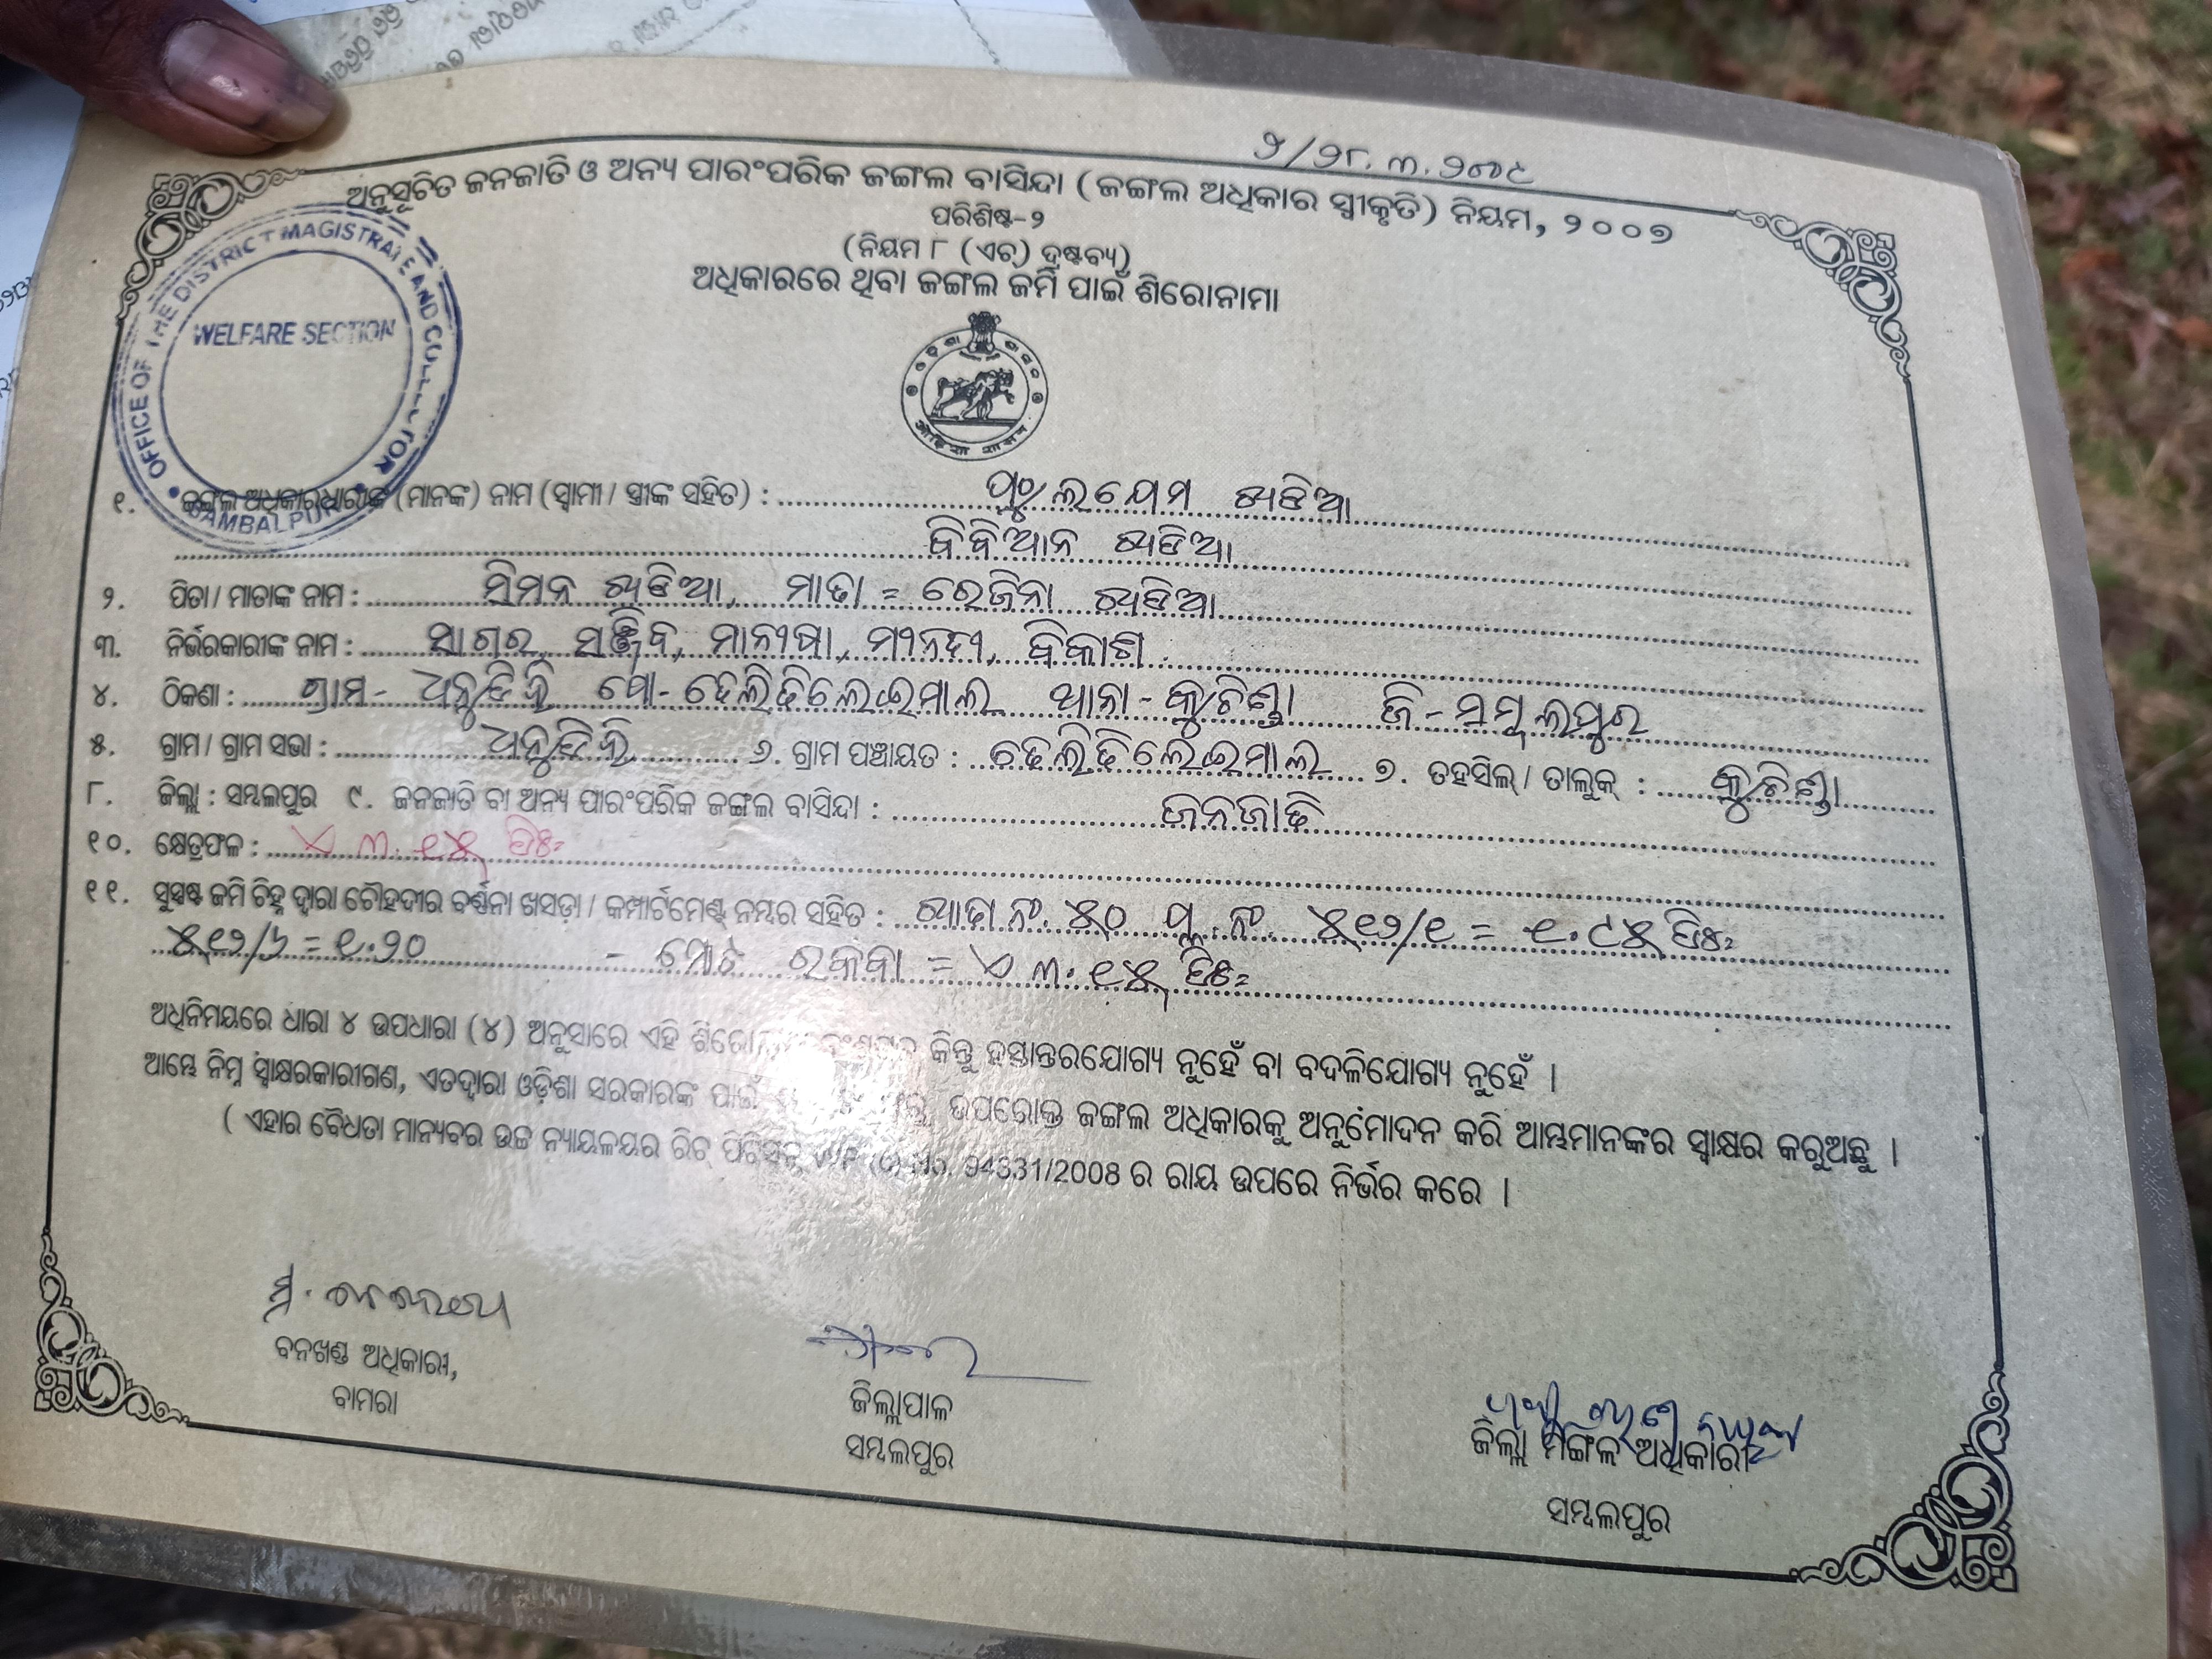 ୨/୨୮.୩.୨୦୦୯
ଅନୁସୂଚିତ ଜନଜାତି ଓ ଅନ୍ୟ ପାରଂପରିକ ଜଙ୍ଗଲ ବାସିନ୍ଦା (ଜଙ୍ଗଲ ଅଧିକାର ସ୍ୱୀକୃତି) ନିୟମ, ୨୦୦୭
ପରିଶିଷ୍ଟ-୨
(ନିୟମ ୮ (ଏଚ୍) ଦ୍ରଷ୍ଟବ୍ୟ)
ଅଧିକାରରେ ଥିବା ଜଙ୍ଗଲ ଜମି ପାଇଁ ଶିରୋନାମା
OFFICE OF THE DISTRICT MAGISTRATE AND COLLECTOR
WELFARE SECTION
SAMBALPUR
୧. ଜଙ୍ଗଲ ଅଧିକାରଧାରୀଙ୍କ (ମାନଙ୍କ) ନାମ (ସ୍ୱାମୀ / ସ୍ତ୍ରୀଙ୍କ ସହିତ) : ଖଡିଆ
ବିବିଆନ ଖଡିଆ
୨. ପିତା / ମାତାଙ୍କ ନାମ : ସିମନ ଖଡିଆ, ମାତା = ରେଜିନା ଖଡିଆ
୩. ନିର୍ଭରକାରୀଙ୍କ ନାମ : ସାଗର, ସଞ୍ଜିବ, ମାନୀଷା, ବିକାଶ
୪. ଠିକଣା : ଗ୍ରାମ- ପୋ- ଥାନା - କୁଚିଣ୍ଡା ଜି - ସମ୍ବଲପୁର
୫. ଗ୍ରାମ / ଗ୍ରାମ ସଭା : ୬. ଗ୍ରାମ ପଞ୍ଚାୟତ : ୭. ତହସିଲ୍ / ତାଲୁକ୍ : କୁଚିଣ୍ଡା
୮. ଜିଲ୍ଲା : ସମ୍ବଲପୁର ୯. ଜନଜାତି ବା ଅନ୍ୟ ପାରଂପରିକ ଜଙ୍ଗଲ ବାସିନ୍ଦା : ଜନଜାତି
୧୦. କ୍ଷେତ୍ରଫଳ : ଏ ୩.୧୫ ଡିଃ
୧୧. ସୁସ୍ପଷ୍ଟ ଜମି ଚିହ୍ନ ଦ୍ୱାରା ଚୌହଦୀର ବର୍ଣ୍ଣନା ଖସଡ଼ା / କମ୍ପାର୍ଟମେଣ୍ଟ ନମ୍ବର ସହିତ : ଖାତା ନଂ. ୫୦ ପ୍ଲ. ନଂ. ୫୧୨/୧ = ୧.୯୫ ଡିଃ
୫୧୨/୬ = ୧.୨୦ - ମୋଟ ରକବା = ଏ ୩.୧୫ ଡିଃ
ଅଧିନିମୟରେ ଧାରା ୪ ଉପଧାରା (୪) ଅନୁସାରେ ଏହି କିନ୍ତୁ ହସ୍ତାନ୍ତରଯୋଗ୍ୟ ନୁହେଁ ବା ବଦଳିଯୋଗ୍ୟ ନୁହେଁ ।
ଆମ୍ଭେ ନିମ୍ନ ସ୍ୱାକ୍ଷରକାରୀଗଣ, ଏତଦ୍ୱାରା ଓଡ଼ିଶା ସରକାରଙ୍କ ପାଇଁ ଉପରୋକ୍ତ ଜଙ୍ଗଲ ଅଧିକାରକୁ ଅନୁମୋଦନ କରି ଆମ୍ଭମାନଙ୍କର ସ୍ୱାକ୍ଷର କରୁଅଛୁ ।
( ଏହାର ବୈଧତା ମାନ୍ୟବର ଉଚ୍ଚ ନ୍ୟାୟଳୟର ରିଟ୍ ପିଟିସନ୍ No. 04331/2008 ର ରାୟ ଉପରେ ନିର୍ଭର କରେ ।
ବନଖଣ୍ଡ ଅଧିକାରୀ,
ବାମରା
ଜିଲ୍ଲାପାଳ
ସମ୍ବଲପୁର
ଜିଲ୍ଲା ମଙ୍ଗଳ ଅଧିକାରୀ
ସମ୍ବଲପୁର